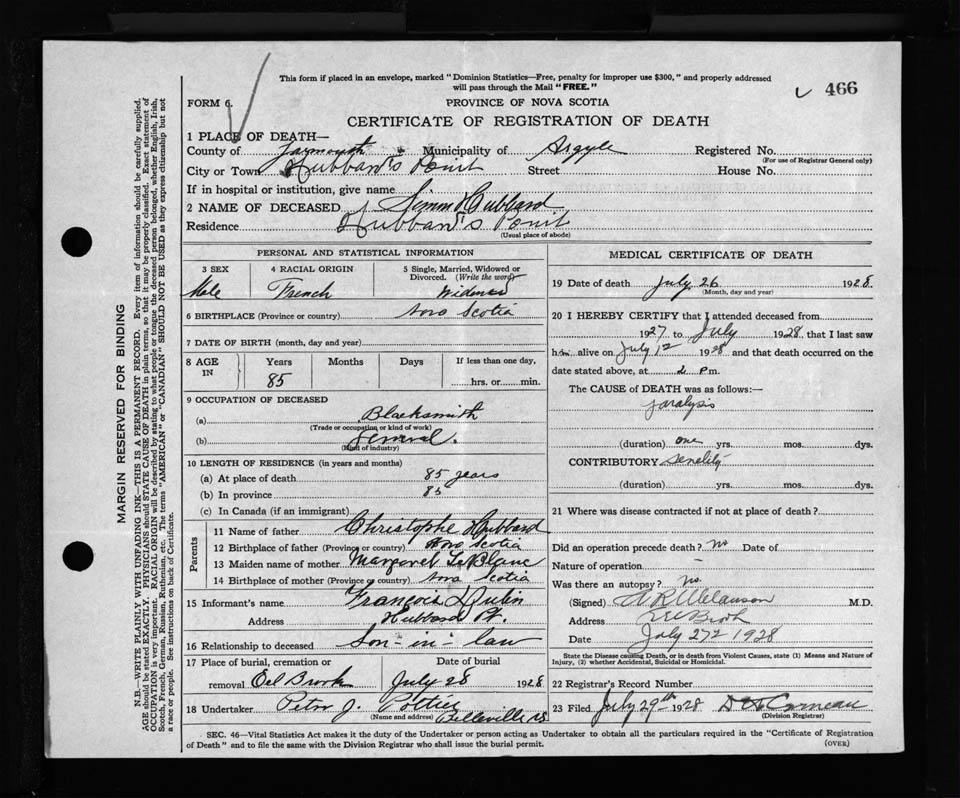 This form if placed in an envelope, marked "Dominion Statistics—Free, penalty for improper use $300," and properly addressed
will pass through the Mail "FREE."
466
FORM 6.
PROVINCE OF NOVA SCOTIA
CERTIFICATE OF REGISTRATION OF DEATH
1 PLACE OF DEATH—
County of Yarmouth Municipality of Argyle Registered No.
(For use of Registrar General only)
City or Town Hubbard's Point Street House No.
If in hospital or institution, give name
2 NAME OF DECEASED Simon Hubbard
Residence Hubbard's Point
(Usual place of abode)
PERSONAL AND STATISTICAL INFORMATION
3 SEX
Male
4 RACIAL ORIGIN
French
5 Single, Married, Widowed or
Divorced. (Write the word)
Widower
6 BIRTHPLACE (Province or country) Nova Scotia
7 DATE OF BIRTH (month, day and year)
8 AGE IN
Years Months Days If less than one day,
85 hrs. or min.
9 OCCUPATION OF DECEASED
(a) Blacksmith
(Trade or occupation or kind of work)
(b) General.
(Kind of industry)
10 LENGTH OF RESIDENCE (in years and months)
(a) At place of death 85 years
(b) In province 85
(c) In Canada (if an immigrant)
Parents
11 Name of father Christophe Hubbard
12 Birthplace of father (Province or country) Nova Scotia
13 Maiden name of mother Margaret LeBlanc
14 Birthplace of mother (Province or country) Nova Scotia
15 Informant's name François
Address Hubbard Pt.
16 Relationship to deceased Son-in-law
17 Place of burial, cremation or Date of burial
removal Eel Brook July 28 1928
18 Undertaker Peter J. Pottier
(Name and address) Belleville NS
MEDICAL CERTIFICATE OF DEATH
19 Date of death July 26 1928.
(Month, day and year)
20 I HEREBY CERTIFY that I attended deceased from
1927 to July 1928 that I last saw
him alive on July 12 1928 and that death occurred on the
date stated above, at 2 Pm.
The CAUSE of DEATH was as follows:—
Paralysis
(duration) one yrs. mos. dys.
CONTRIBUTORY Senelity
(duration) yrs. mos. dys.
21 Where was disease contracted if not at place of death?
Did an operation precede death? No Date of
Nature of operation
Was there an autopsy? No.
(Signed) M.D.
Address Brook
Date July 27 1928
State the Disease causing Death, or in death from Violent Causes, state (1) Means and Nature of
Injury, (2) whether Accidental, Suicidal or Homicidal.
22 Registrar's Record Number
23 Filed July 29th 1928
(Division Registrar)
SEC. 46—Vital Statistics Act makes it the duty of the Undertaker or person acting as Undertaker to obtain all the particulars required in the "Certificate of Registration
of Death" and to file the same with the Division Registrar who shall issue the burial permit.
(OVER)
MARGIN RESERVED FOR BINDING
N.B.—WRITE PLAINLY WITH UNFADING INK—THIS IS A PERMANENT RECORD. Every item of information should be carefully supplied.
AGE should be stated EXACTLY. PHYSICIANS should STATE CAUSE OF DEATH in plain terms, so that it may be properly classified. Exact statement of
OCCUPATION is very important. RACIAL ORIGIN will be described by stating to what people or tongue the deceased person belonged, whether English, Irish,
Scotch, French, German, Russian, Ruthenian, etc. The terms "AMERICAN" or "CANADIAN" SHOULD NOT BE USED as they express citizenship but not
a race or people. See instructions on back of Certificate.